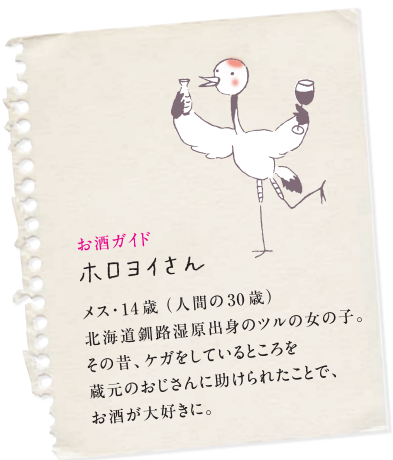 お酒ガイド
ホロヨイさん
メス・14歳（人間の30歳）
北海道釧路湿原出身のツルの女の子。
その昔、ケガをしているところを
蔵元のおじさんに助けられたことで、
お酒が大好きに。